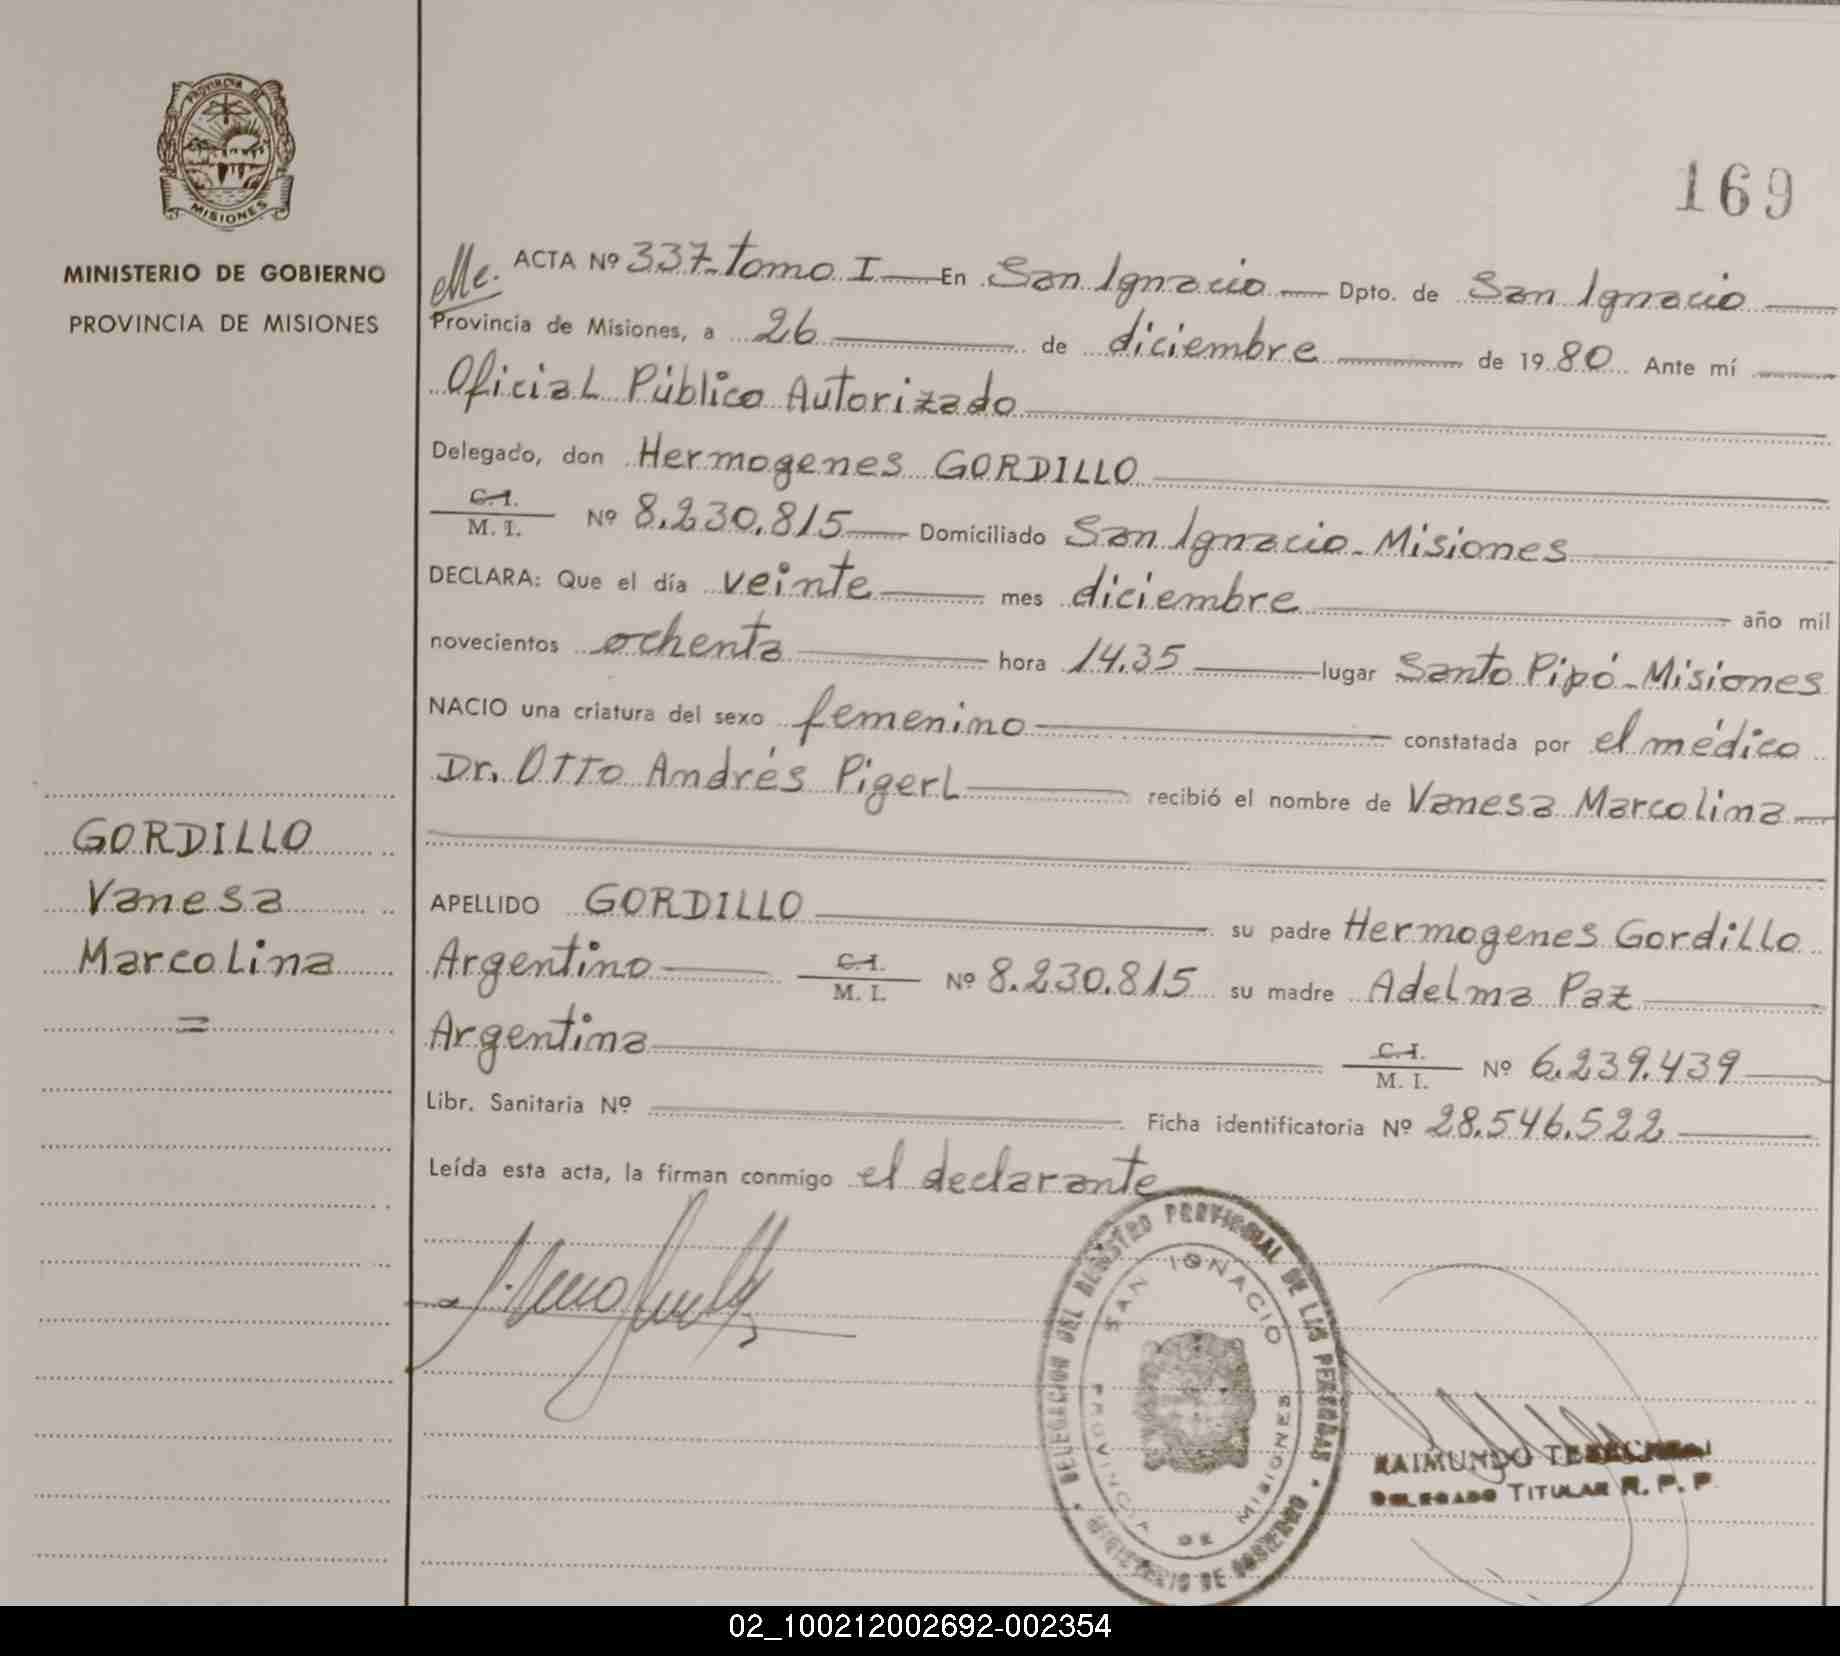 PROVINCIA DE
MISIONES
MINISTERIO DE GOBIERNO
PROVINCIA DE MISIONES
169
ACTA Nº 337-tomo I En San Ignacio Dpto. de San Ignacio
Provincia de Misiones, a 26 de diciembre de 1980 Ante mí
Oficial Público Autorizado
Delegado, don Hermogenes GORDILLO
C.I.
M. I. Nº 8.230.815 Domiciliado San Ignacio-Misiones
DECLARA: Que el día veinte mes diciembre año mil
novecientos ochenta hora 14.35 lugar Santo Pipó-Misiones
NACIO una criatura del sexo femenino constatada por el médico
Dr. Otto Andrés Pigerl recibió el nombre de Vanesa Marcolina
GORDILLO
Vanesa
Marcolina
=
APELLIDO GORDILLO su padre Hermogenes Gordillo
Argentino C.I. M. I. Nº 8.230.815 su madre Adelma Paz
Argentina C.I. M. I. Nº 6.239.439
Libr. Sanitaria Nº Ficha identificatoria Nº 28.546.522
Leída esta acta, la firman conmigo el declarante
DELEGACION DEL REGISTRO PROVINCIAL DE LAS PERSONAS
SAN IGNACIO
PROVINCIA DE MISIONES
MINISTERIO DE GOBIERNO
RAIMUNDO
DELEGADO TITULAR R. P. P.
02_100212002692-002354